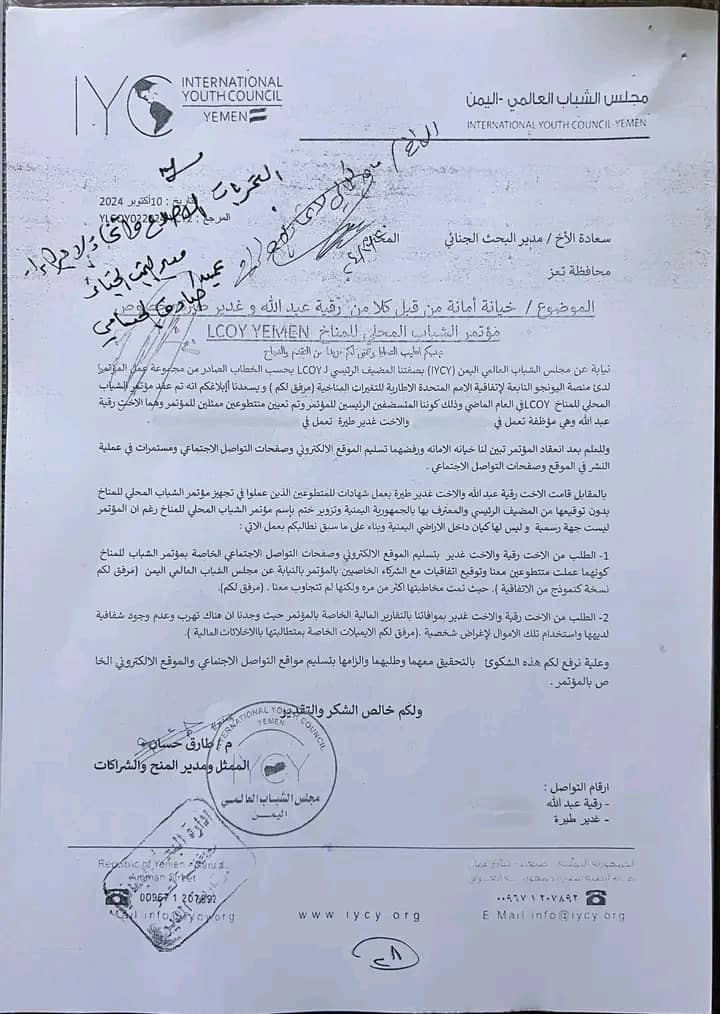 INTERNATIONAL
YOUTH COUNCIL
YEMEN
مجلس الشباب العالمي -اليمن
INTERNATIONAL YOUTH COUNCIL-YEMEN
10أكتوبر 2024
سعادة الأخ / مدير البحث الجنائي المحترم
محافظة تعز
الموضوع / خيانة أمانة من قبل كلا من رقية عبد الله و غدير طيرة
مؤتمر الشباب المحلي للمناخ LCOY YEMEN
نيابة عن مجلس الشباب العالمي اليمن (IYCY) بصفتنا المضيف الرئيسي لـ LCOY بحسب الخطاب الصادر من مجموعة عمل المؤتمر
لدئ منصة اليونجو التابعة لإتفاقية الامم المتحدة الاطارية للتغيرات المناخية (مرفق لكم ) و يسعدنا إبلاغكم انه تم عقد مؤتمر الشباب
المحلي للمناخ LCOYفي العام الماضي وذلك كوننا المتسضفين الرئيسين للمؤتمر وتم تعيين متتطوعين ممثلين للمؤتمر وهما الاخت رقية
عبد الله وهي مؤظفة تعمل في والاخت غدير طيرة تعمل في
وللعلم بعد انعقاد المؤتمر تبين لنا خيانه الامانه ورفضهما تسليم الموقع الالكتروني وصفحات التواصل الاجتماعي ومستمرات في عملية
النشر في الموقع وصفحات التواصل الاجتماعي .
بالمقابل قامت الاخت رقية عبدالله والاخت غدير طيرة بعمل شهادات للمتطوعين الذين عملوا في تجهيز مؤتمر الشباب المحلي للمناخ
بدون توقيعها من المضيف الرئيسي والمعترف بها بالجمهورية اليمنية وتزوير ختم بإسم مؤتمر الشباب المحلي للمناخ رغم ان المؤتمر
ليست جهة رسمية و ليس لها كيان داخل الاراضي اليمنية وبناء على ما سبق نطالبكم بعمل الاتي :
1- الطلب من الاخت رقية والاخت غدير بتسليم الموقع الالكتروني وصفحات التواصل الاجتماعي الخاصة بمؤتمر الشباب للمناخ
كونهما عملت متتطوعين معنا وتوقيع اتفاقيات مع الشركاء الخاصيين بالمؤتمر بالنيابة عن مجلس الشباب العالمي اليمن (مرفق لكم
نسخة كنموذج من الاتفاقية ). حيث تمت مخاطبتها اكثر من مره ولكنها لم تتجاوب معنا . (مرفق لكم).
2- الطلب من الاخت رقية والاخت غدير بموافاتنا بالتقارير المالية الخاصة بالمؤتمر حيث وجدنا ان هناك تهرب وعدم وجود شفافية
لديهها واستخدام تلك الاموال لإغراض شخصية .(مرفق لكم الايميلات الخاصة بمتطالبتها باالاخلائات المالية ).
وعلية نرفع لكم هذه الشكوئ بالتحقيق معهما وطلبهما والزامها بتسليم مواقع التواصل الاجتماعي والموقع الالكتروني الخا
ص بالمؤتمر .
ولكم خالص الشكر والتقدير
م / طارق حسان
الممثل ومدير المنح والشراكات
INTERNATIONAL YOUTH COUNCIL
YEMEN
IYCY
مجلس الشباب العالمي
اليمن
ارقام التواصل :
- رقية عبد الله
- غدير طيرة
Republic of Yemen
Amman Street
00967 1 207892
Mail info@iycy.org
www iycy org
٠٠٩٦٧١٢٠٧٨٩٢
E Mail info@iycy org